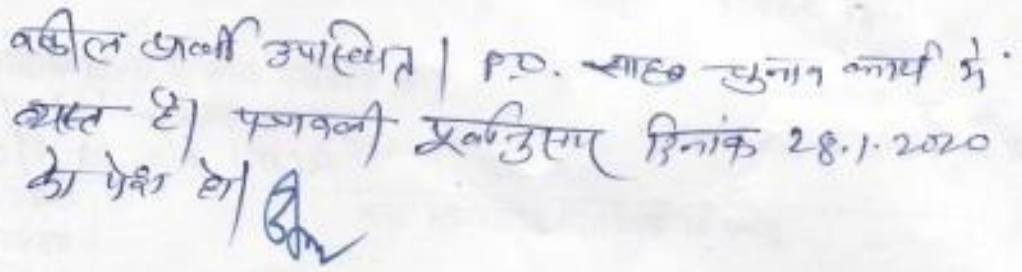 वकील प्रार्थी उपस्थित। P.O. साहब चुनाव कार्य में
व्यस्त है। पत्रावली पूर्वानुसार दिनांक 28.1.2020
को पेश हो।